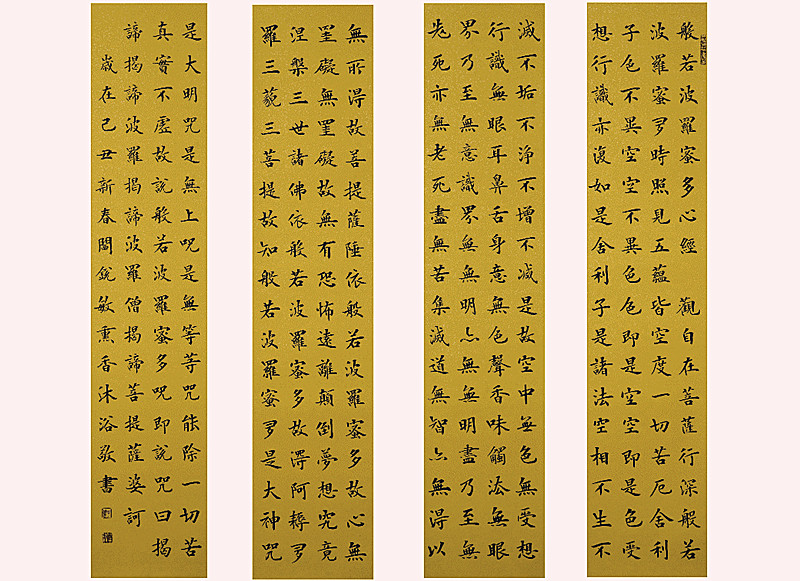 般若波羅蜜多心經 觀自在菩薩行深般若
波羅蜜多時照見五蘊皆空度一切苦厄舍利
子色不異空空不異色色即是空空即是色受
想行識亦復如是舍利子是諸法空相不生不
滅不垢不淨不增不減是故空中無色無受想
行識無眼耳鼻舌身意無色聲香味觸法無眼
界乃至無意識界無無明亦無無明盡乃至無
老死亦無老死盡無苦集滅道無智亦無得以
無所得故菩提薩埵依般若波羅蜜多故心無
罣礙無罣礙故無有恐怖遠離顛倒夢想究竟
涅槃三世諸佛依般若波羅蜜多故得阿耨多
羅三藐三菩提故知般若波羅蜜多是大神咒
是大明咒是無上咒是無等等咒能除一切苦
真實不虛故說般若波羅蜜多咒即說咒曰揭
諦揭諦波羅揭諦波羅僧揭諦菩提薩婆訶
歲在己丑新春閩銳敏熏香沐浴敬書